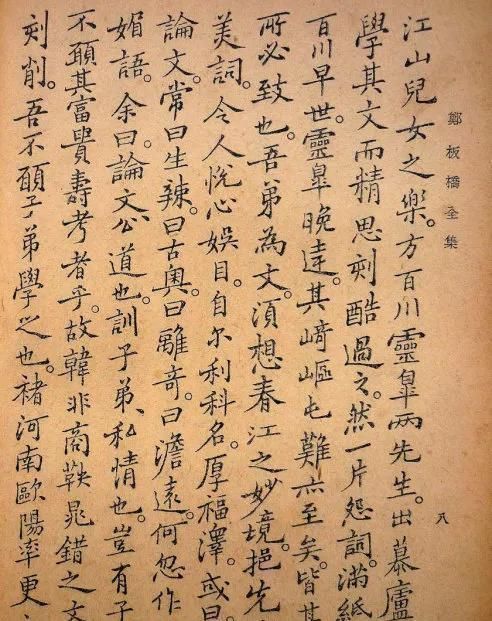 鄭板橋全集
八
江山兒女之樂。方百川靈皐兩先生。出慕廬
學其文而精思刻酷過之。然一片怨詞。滿紙
百川早世。靈皐晚達。其崎嶇屯難亦至矣。皆其
所必致也。吾弟為文。須想春江之妙境。挹先
美詞。令人悅心娛目。自尔利科名。厚福澤。或曰
論文。常曰生辣。曰古奧。曰離奇。曰澹遠。何忽作
媚語。余曰。論文公道也。訓子弟、私情也。豈有子
不願其富貴壽考者乎。故韓非商鞅晁錯之文
刻削。吾不願子弟學之也。褚河南歐陽率更